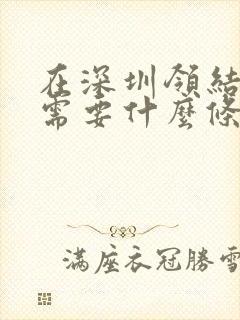 在深圳領結
需要什麼條
滿座衣冠勝雪